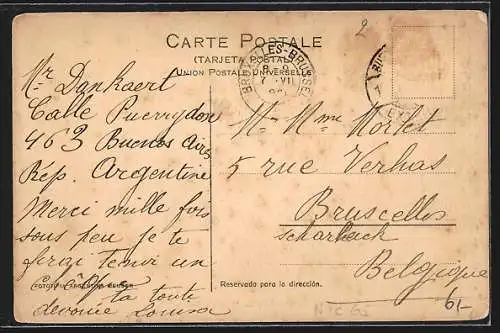 2
CARTE POSTALE
(TARJETA POSTAL)
UNION POSTALE UNIVERSELLE
BRUXELLES-BRUSSEL
7 VII
Mr Dankaert
Calle Pueyrredon
463 Buenos Aires
Rép. Argentine
Merci mille fois
sous peu je te
ferai un
ta toute
devouée Louisa
Mr Mme Morlet
5 rue Verhas
Bruscelles
scharbeeck
Belgique
Reservado para la dirección.
61-